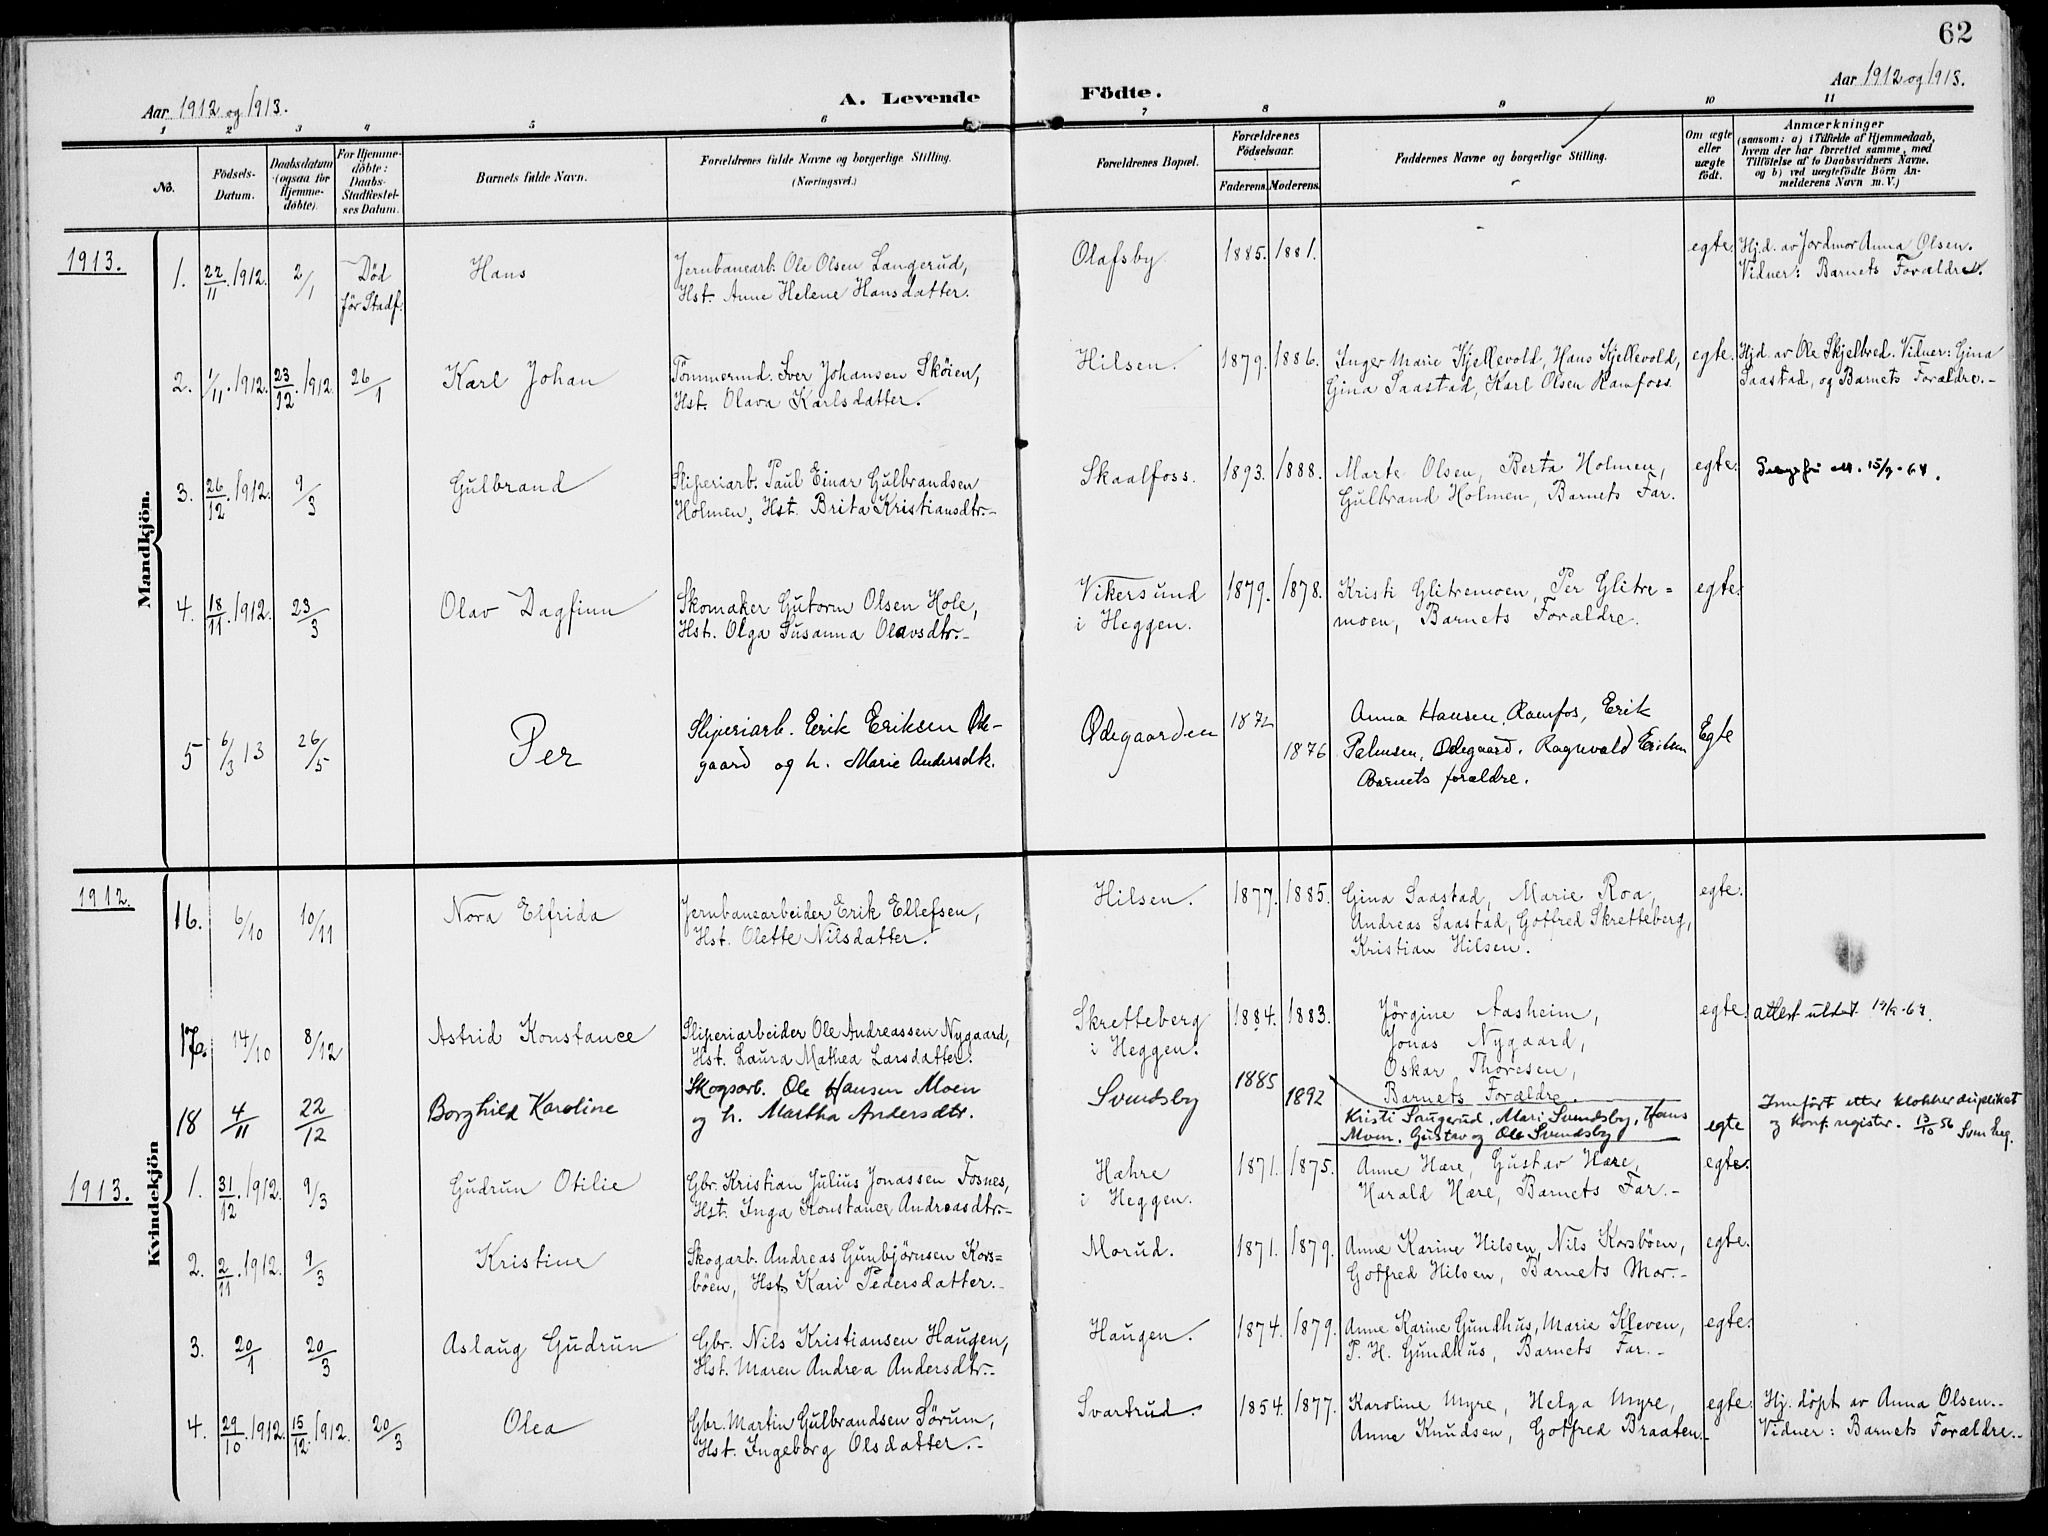 62
Aar 1912 og 1913.
A. Levende Födte.
Aar 1912 og 1913.
1 2 3 4 5 6 7 8 9 10 11
No.
Födsels-
Datum.
Daabsdatum
(ogsaa for
Hjemme-
döbte).
For Hjemme-
döbte:
Daabs-
Stadfæstel-
ses Datum.
Barnets fulde Navn.
Forældrenes fulde Navne og borgerlige Stilling.
(Næringsvei.)
Forældrenes Bopæl.
Forældrenes
Födselsaar.
Faderens. Moderens.
Faddernes Navne og borgerlige Stilling.
Om ægte
eller
uægte
födt.
Anmærkninger
(saasom: a) i Tilfælde af Hjemmedaab,
hvem der har forrettet samme, med
Tilföielse af to Daabsvidners Navne.
og b) ved uægtefödte Börn An-
melderens Navn m. V.)
Mandkjön.
1913.
1. 22/11.1912. 2/1 Död
för Stadf.
Hans
Jernbanearb. Ole Olsen Langerud,
Hst. Anne Helene Hansdatter.
Olafsby 1885. 1881. egte.
Hjd. av Jordmor Anna Olsen.
Vidner: Barnets Forældre.
2. 1/11.1912. 23/12.1912. 26/1
Karl Johan
Tömmermd. Iver Johansen Sköien,
Hst. Olava Karlsdatter.
Hilsen. 1879. 1886.
Inger Marie Kjellevold, Hans Kjellevold,
Gina Saastad, Karl Olsen Ramfoss.
egte.
Hjd. av Ole Skjelbred. Vidner: Gina
Saastad, og Barnets Forældre.-
3. 26/12.1912. 9/3
Gulbrand
Sliperiarb. Paul Einar Gulbrandsen
Holmen, Hst. Brita Kristiansdtr.-
Skaalfoss. 1893. 1888.
Marte Olsen, Berta Holmen,
Gulbrand Holmen, Barnets Far.
egte.
15/9-64.
4. 18/11.1912. 23/3
Olav Dagfinn
Skomaker Gutorm Olsen Hole,
Hst. Olga Susanna Olavsdtr.-
Vikersund
i Heggen.
1879. 1878.
Kristi Glitremoen, Per Glitre=
moen, Barnets Forældre.
egte.
5 6/3 13 26/5
Per
Sliperiarb. Erik Eriksen Öde-
gaard og h. Marie Andersdtr.
Ödegaarden 1872 1876
Anna Hansen, Ramfos, Erik
Ödegaard. Ragnvald Eriksen
Barnets forældre.
Egte
Kvindekjön
1912.
16. 6/10 10/11
Nora Elfrida
Jernbanearbeider Erik Ellefsen,
Hst. Olette Nilsdatter.
Hilsen. 1877. 1885.
Gina Saastad, Marie Roa,
Andreas Saastad, Gotfred Skretteberg,
Kristian Hilsen.
egte.
17. 14/10 8/12
Astrid Konstance
Sliperiarbeider Ole Andreassen Nygaard,
Hst. Laura Mathea Larsdatter.
Skretteberg
i Heggen.
1884. 1883.
Jörgine Aasheim,
Jonas Nygaard,
Oskar Thoresen,
Barnets Forældre.
egte.
attest utst. -64.
18 4/11 22/12
Borghild Karoline
Skogsarb. Ole Hansen Moen
og h. Martha Andersdtr.
Svendsby 1885 1892
Kristi Saugerud, Mari Svendsby, Hans
Moen, Gustav og Ole Svendsby
egte
Innført etter klokkerduplikat
og konf.register. 13/10 56
1913.
1. 31/12.1912. 9/3
Gudrun Otilie
Gbr. Kristian Julius Jonassen Fosnes,
Hst. Inga Konstance Andreasdtr.-
Hahre
i Heggen.
1871. 1875.
Anne Hære, Gustav Hære,
Harald Hære, Barnets Far.-
egte.
2. 2/11.1912. 9/3
Kristine
Skogarb. Andreas Gunbjörnsen Kors=
böen, Hst. Kari Pedersdatter.-
Morud. 1871. 1879.
Anne Karine Hilsen, Nils Korsböen,
Gotfred Hilsen, Barnets Mor.-
egte.
3. 20/1 20/3
Aslaug Gudrun
Gbr. Nils Kristiansen Haugen,
Hst. Maren Andrea Andersdtr.-
Haugen. 1874. 1879.
Anne Karine Gundhus, Marie Kleven,
P. H. Gundhus, Barnets Far.-
egte.
4. 29/10.1912. 15/12.1912. 20/3
Olea
Gbr. Martin Gulbrandsen Sörum,
Hst. Ingeborg Olsdatter.-
Svartrud. 1854. 1877.
Karoline Myre, Helga Myre,
Anne Knudsen, Gotfred Braaten.-
egte.
Hj. döpt av Anna Olsen.-
Vidner: Barnets Forældre.-